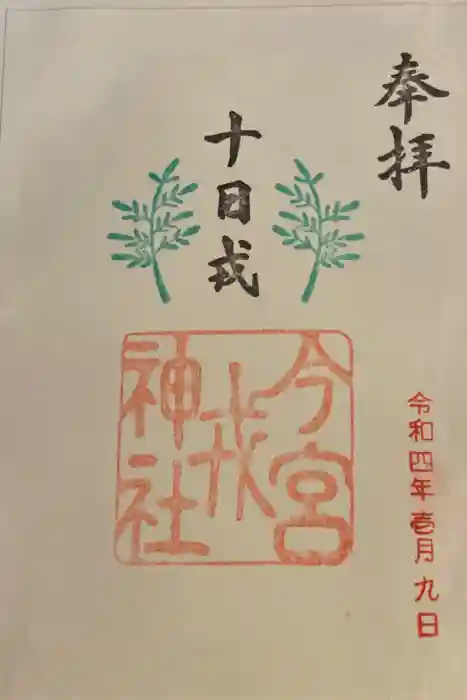 奉拝
十日戎
今宮
戎
神社
令和四年壱月九日